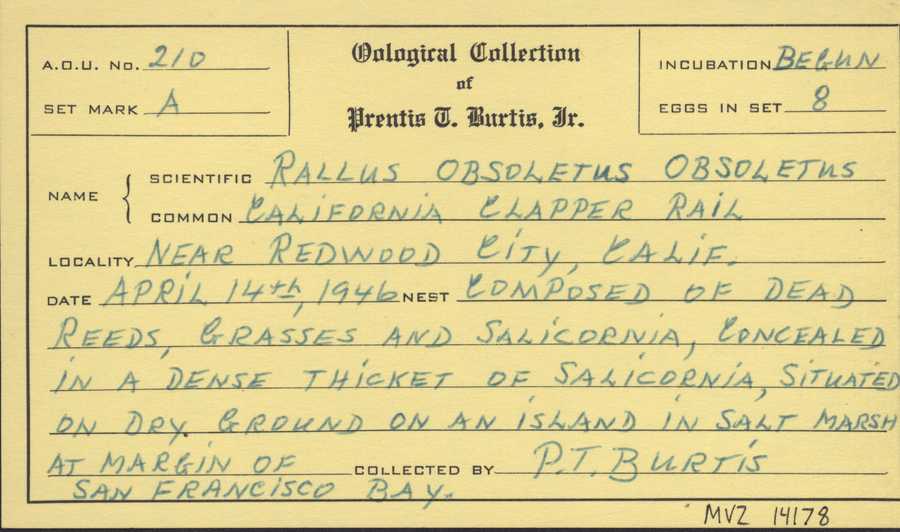 A.O.U. No. 210
SET MARK A
Oological Collection
of
Prentis T. Burtis, Jr.
INCUBATION BEGUN
EGGS IN SET 8
NAME
SCIENTIFIC RALLUS OBSOLETUS OBSOLETUS
COMMON CALIFORNIA CLAPPER RAIL
LOCALITY NEAR REDWOOD CITY, CALIF.
DATE APRIL 14th, 1946 NEST COMPOSED OF DEAD
REEDS, GRASSES AND SALICORNIA, CONCEALED
IN A DENSE THICKET OF SALICORNIA, SITUATED
ON DRY GROUND ON AN ISLAND IN SALT MARSH
AT MARGIN OF COLLECTED BY P.T. BURTIS
SAN FRANCISCO BAY.
MVZ 14178